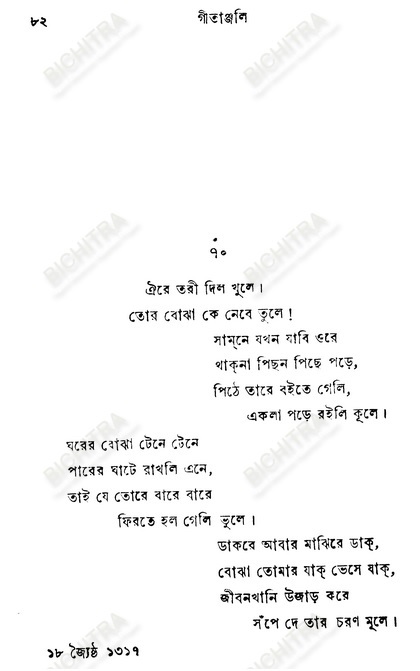 ৮২
গীতাঞ্জলি
৭০
ঐরে তরী দিল খুলে।
তোর বোঝা কে নেবে তুলে!
সাম্‌নে যখন যাবি ওরে
থাক্‌না পিছন পিছে পড়ে,
পিঠে তারে বইতে গেলি,
একলা পড়ে রইলি কূলে।
ঘরের বোঝা টেনে টেনে
পারের ঘাটে রাখলি এনে,
তাই যে তোরে বারে বারে
ফিরতে হল গেলি ভুলে।
ডাকরে আবার মাঝিরে ডাক্‌,
বোঝা তোমার যাক্‌ ভেসে যাক্‌,
জীবনখানি উজাড় করে
সঁপে দে তার চরণ মূলে।
১৮ জ্যৈষ্ঠ ১৩১৭
BICHITRA
BICHITRA
BICHITRA
BICHITRA
BICHITRA
BICHITRA